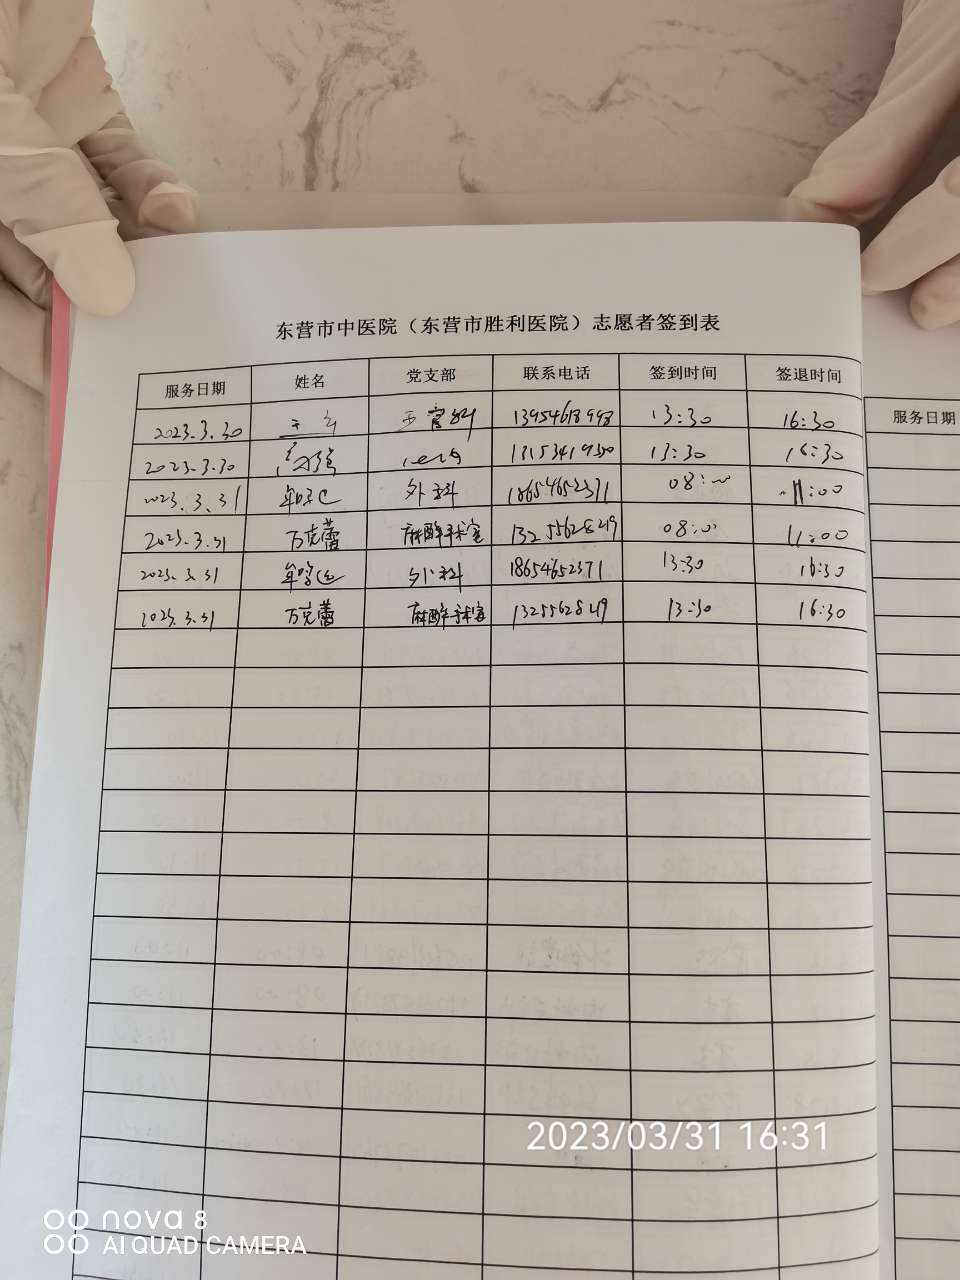 东营市中医院（东营市胜利医院）志愿者签到表
服务日期 姓名 党支部 联系电话 签到时间 签退时间
服务日期
2023.3.30 13954618998 13:30 16:30
2023.3.30 13:30 16:30
2023.3.31 外科 18654652371 08:00 11:00
2023.3.31 万克蕾 麻醉手术室 13255628219 08:00 11:00
2023.3.31 外科 18654652371 13:30 16:30
2023.3.31 万克蕾 麻醉手术室 13255628219 13:30 16:30
2023/03/31 16:31
nova 8
AI QUAD CAMERA